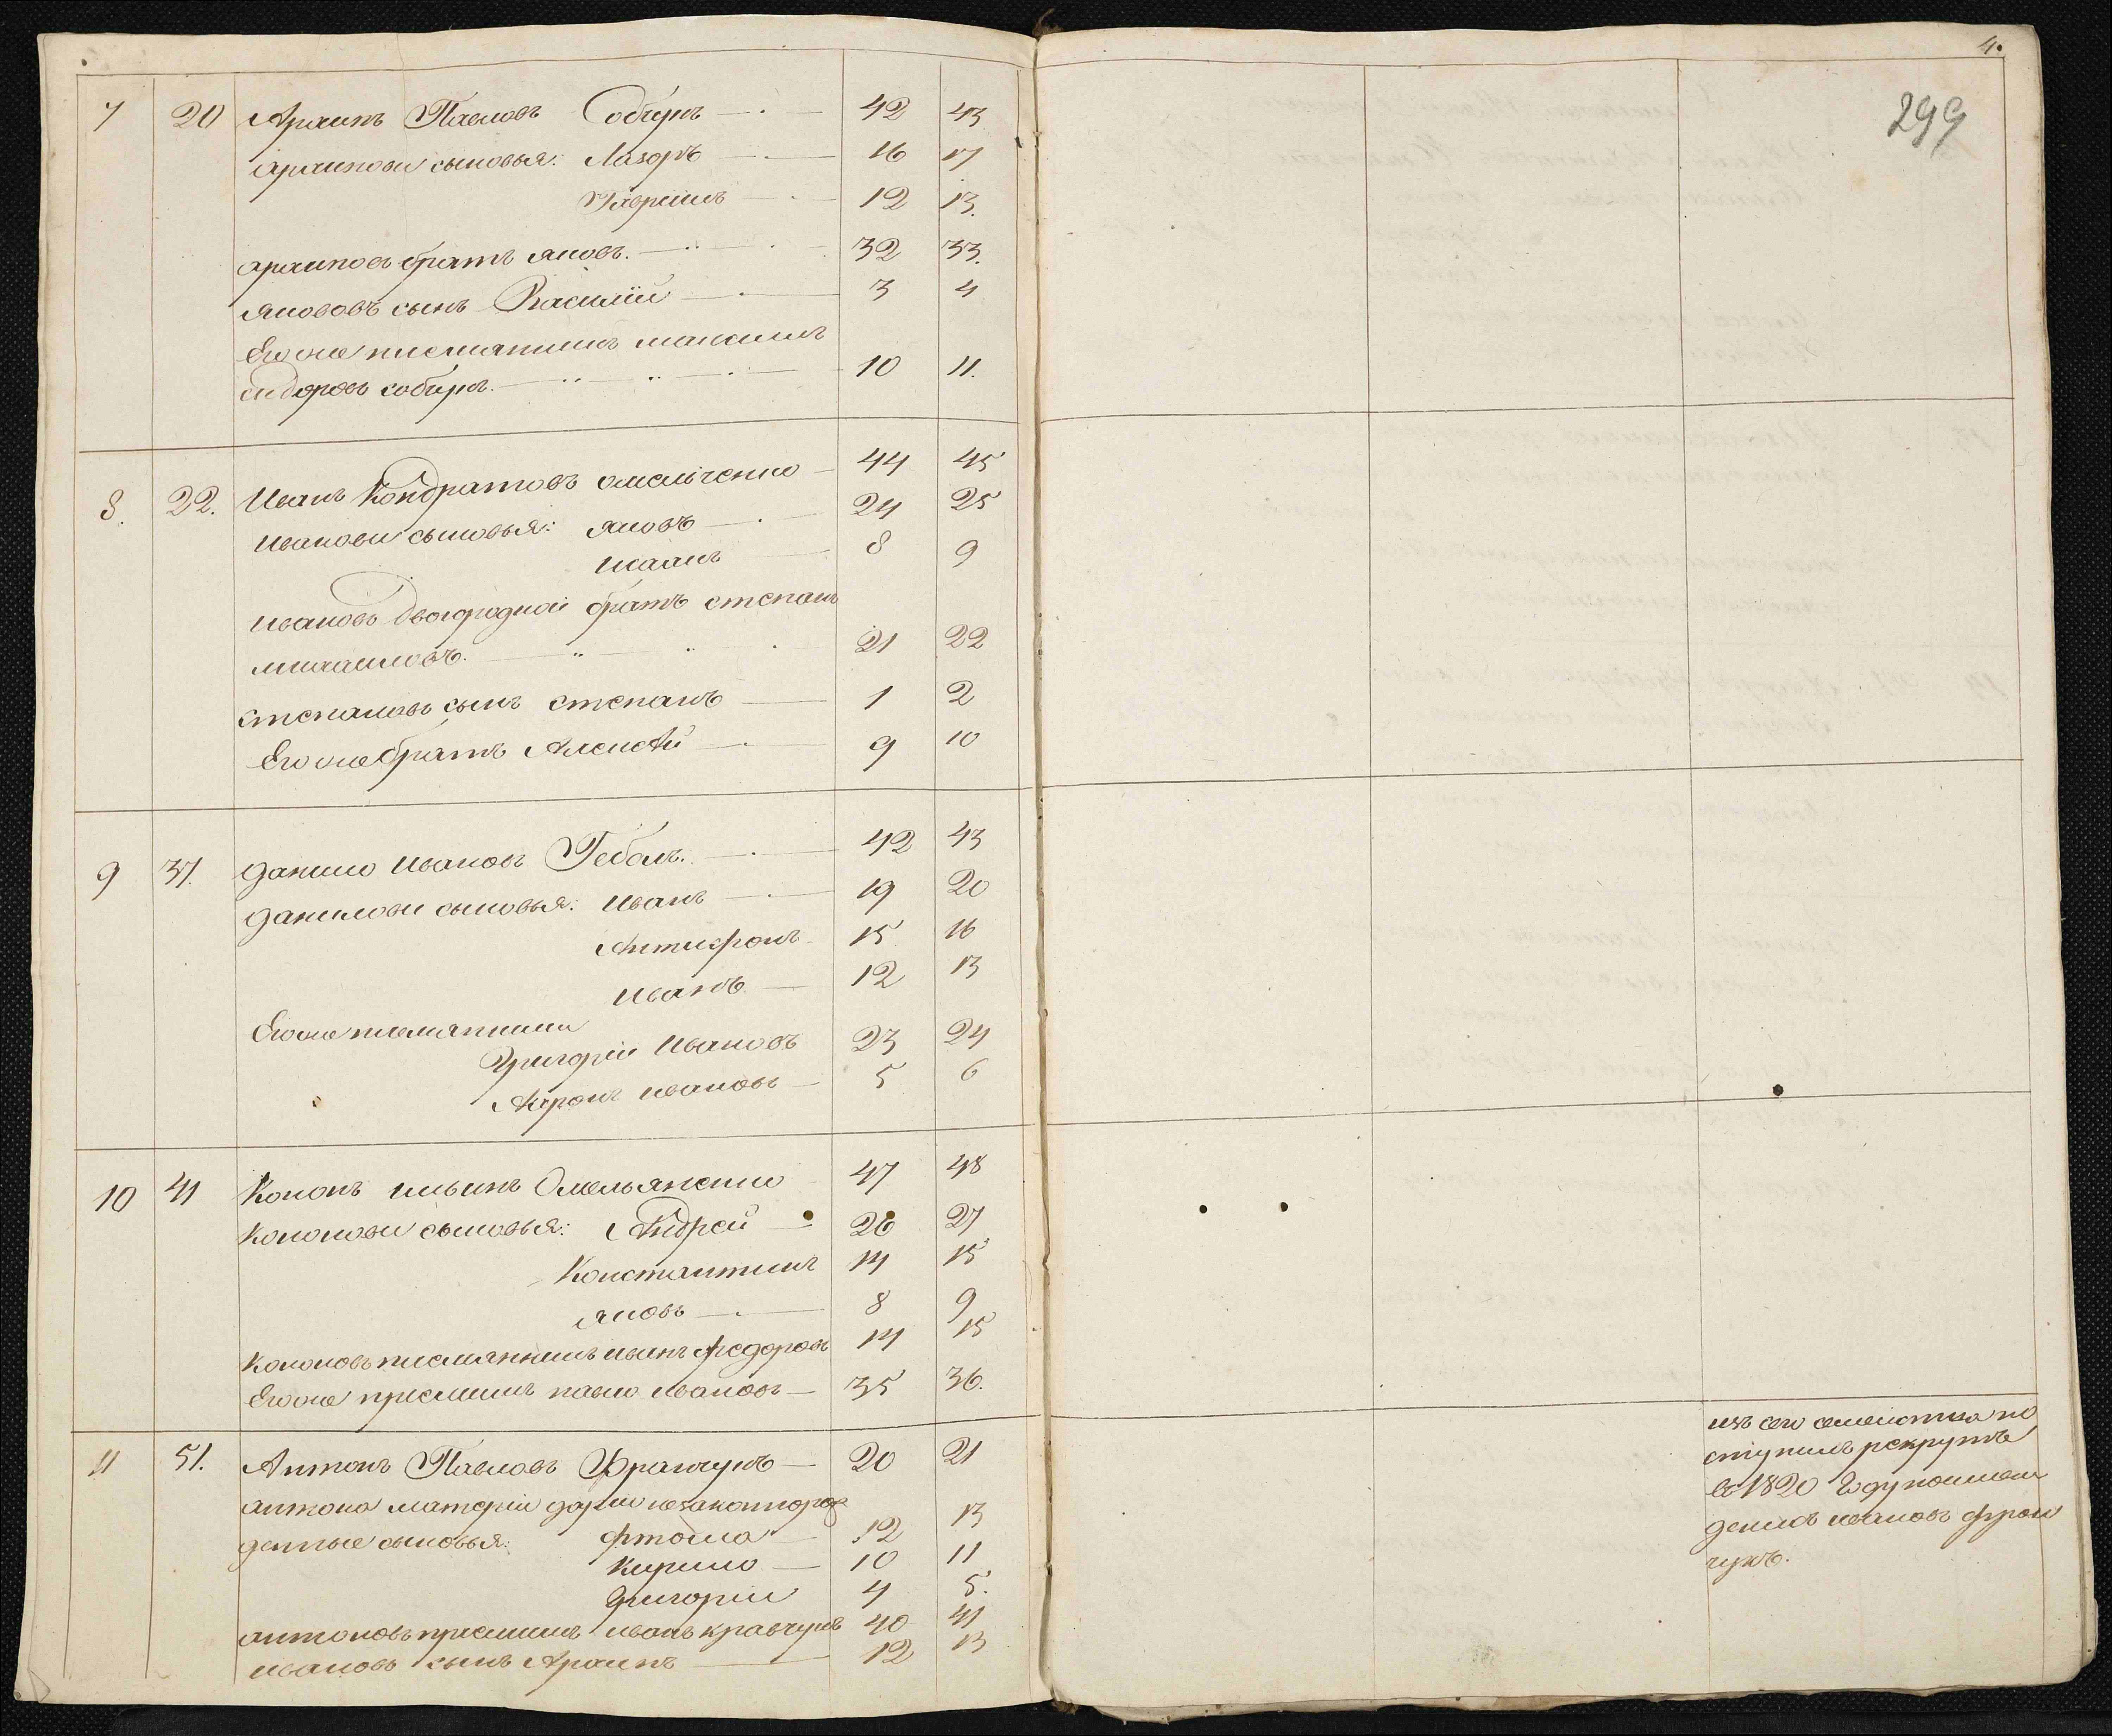 4.
299
7 20 Архипъ Павловъ Собчукъ 42 43
архиповы сыновья: Лазоръ 16 17
Гаврiилъ 12 13.
архиповъ братъ яковъ. 32 33.
яковovъ сынъ Василiй 3 4
Его же племянникъ максимъ
сидоровъ собчукъ. 10 11.
8. 22. Иванъ Кондратовъ омельченко 44 45
ивановы сыновья: яковъ 24 25
исаакъ 8 9
ивановъ двоюродной братъ степанъ
михаиловъ. 21 22
степановъ сынъ степанъ 1 2
Его же братъ Алексѣй 9 10
9 37. данило ивановъ 42 43
даниловы сыновья: иванъ 19 20
15 16
иванъ 12 13
Его же племянники
Григорiй ивановъ 23 24
ивановъ 5 6
10 41 Кононъ ильинъ Омельяненко 47 48
кононовы сыновья: Андрей 26 27
Константинъ 14 15
яковъ 8 9
кононовъ племянникъ федоровъ 14 15
Его же прiемышъ павло ивановъ 35 36.
11 51. Антонъ Павловъ Франчукъ 20 21
антона матери дарiи незаконнорож
денные сыновья: фтома 12 13
кирило 10 11
григорiй 4 5.
антоновъ прiемышъ иванъ кравчукъ 40 41
ивановъ сынъ Архипъ 12 13
изъ сего семейства по
ступилъ рекрутъ
въ 1820 году
ивановъ фран
чукъ.